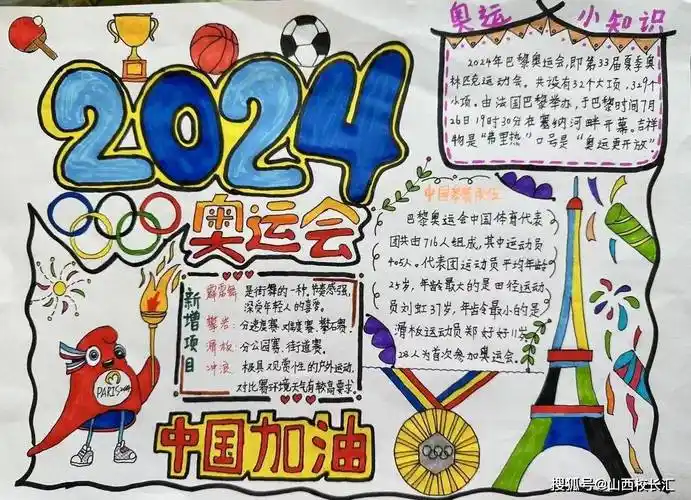 奥运 小知识
2024年巴黎奥运会,即第33届夏季奥
林匹克运动会。共设有32个大项,329个
小项。由法国巴黎举办,于巴黎时间7月
26日19时30分在塞纳河畔开幕。吉祥
物是“弗里热”口号是“奥运更开放”
2024
奥运会
新增项目
霹雳舞:是街舞的一种。节奏感强,
深受年轻人的喜爱。
攀岩:分速度赛、难度赛、攀石赛。
滑板:分公园赛、街道赛。
冲浪:极具观赏性的户外运动,
对比赛环境天气有较高要求。
中国
巴黎奥运会中国体育代表
团共由716人组成,其中运动员
405人。代表团运动员平均年龄
25岁,年龄最大的是田径运动
员刘虹37岁,年龄最小的是
滑板运动员郑好好11岁。
人为首次参加奥运会。
PARIS
中国加油
搜狐号@山西校长汇